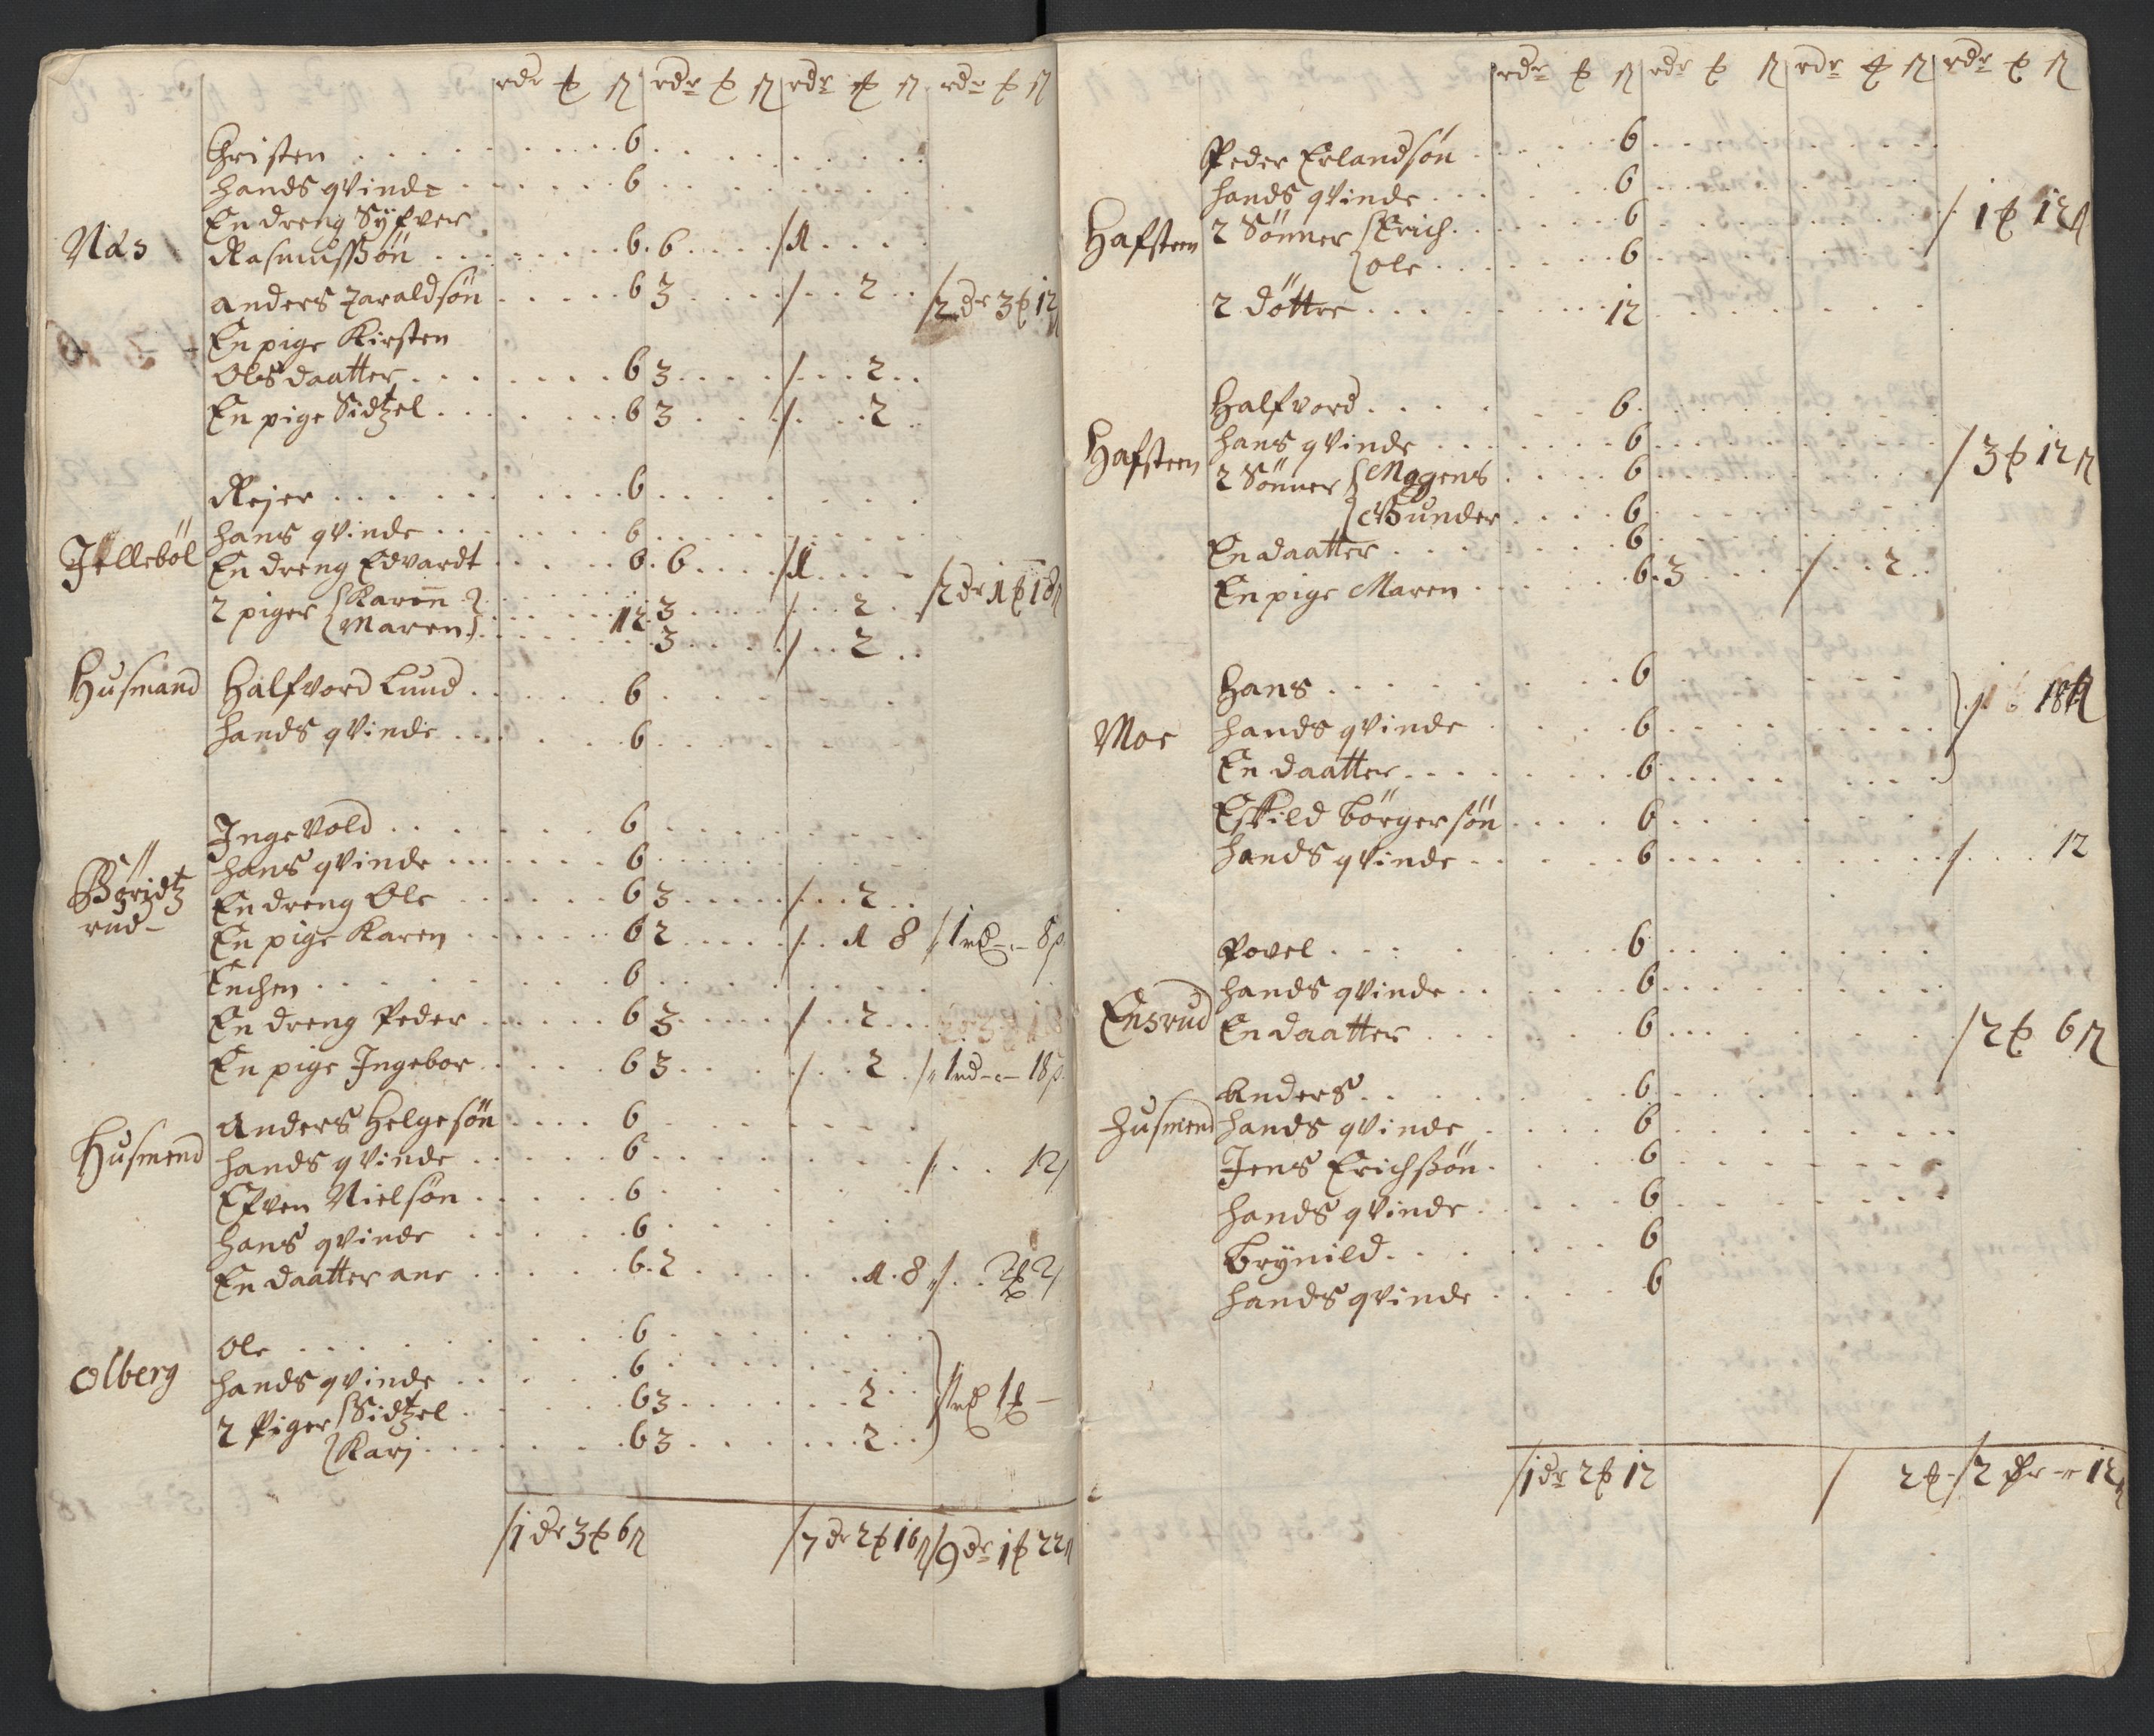 rdr ꝑ ß rdr ꝑ ß rdr ꝑ ß rdr ꝑ ß
Christen . . . 6 . . .
hands qvinde . . . 6 . . .
En dreng Syfver
Næs Rasmussøn . . . 6. 6 . . . /1 . . .
anders Haraldsøn . . . 6 3 . . . / . . 2 . . /2 dr 3 ꝑ 12 ß
En pige Kirsten
Olsdaatter . . . 6 3 . . . / . . . 2 . .
En pige Sidtzel . . . 6 3 . . . / . . . 2 .
Rejer . . . 6 . . .
hans qvinde . . . 6 . . .
Jellebøl En dreng Edvardt . . . 6. 6 . . . /1 . . .
2 piger { Karen } . . . 12. 3 . . . / . . 2 . /2 dr 1 ꝑ 18 ß
{ Maren } . . . 3 . . . / . . 2 . .
Husmand Halfvord Lund . . . 6 . . .
hands qvinde . . . 6 . . .
Ingevold . . . 6 . . .
hans qvinde . . . 6 . . .
Børidtz En dreng Ole . . . 6 3 . . . / . . 2 . .
rud- En pige Karen . . . 6 2 . . . / . . 1 8 /1 rd - - 8 ß
Enchen . . . 6 . . .
En dreng Peder . . . 6 3 . . . / . . 2 . .
En pige Ingebor . . . 6 3 . . . / . . 2 . /1 rd - - 18 ß
anders Helgesøn . . . 6 . . .
Husmend hands qvinde . . . 6 . . . / . . 12 ß
Efven Nielsøn . . . 6 . . .
hans qvinde . . . 6 . . .
En daatter ane . . . 6. 2 . . . 1. 8 / . . 2 ꝑ 2 ß
Ole . . . 6 . . .
Olberg hands qvinde . . . 6 . . .
2 Piger { Sidtzel . . . 6 3 . . . 2 . . } /1 rd 1 ꝑ -
{ Karj . . . 6 3 . . . 2 . .
/1 dr 3 ꝑ 6 ß /7 dr 2 ꝑ 16 ß /9 dr 1 ꝑ 22 ß
rdr ꝑ ß rdr ꝑ ß rdr ꝑ ß rdr ꝑ ß
Peder Erlandsøn . . . 6 . . .
hands qvinde . . . 6 . . .
Hafsteen 2 Sønner { Erich . . . 6 . . . / 1 ꝑ 12 ß
{ Ole . . . 6 . . .
2 døttre . . . 12 . . .
Halfvord . . . 6 . . .
Hafsteen hans qvinde . . . 6 . . . /3 ꝑ 12 ß
2 Sønner { Mogens . . . 6 . . .
{ Gunder . . . 6 . . .
En daatter . . . 6 . . .
En pige Maren . . . 6. 3 . . . / . . 2 . .
Hans . . . 6 . . . } / 18 ß
Moe hands qvinde . . . 6 . . .
En daatter . . . 6 . . .
Eskild Børgersøn . . . 6 . . .
hands qvinde . . . 6 . . . / . . . 12
Povel . . . 6 . . .
hands qvinde . . . 6 . . .
Ensrud En daatter . . . 6 . . . /2 ꝑ 6 ß
Anders . . . 6 . . .
Husmend hands qvinde . . . 6 . . .
Jens Erichsøn . . . 6 . . .
hands qvinde . . . 6 . . .
Brynild . . . 6
hands qvinde . . . 6
/1 dr 2 ꝑ 12 / 2 ꝑ - /2 dr - 12 ß